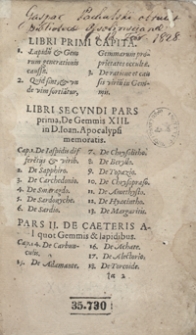 LIBRI PRIMI CAPITA.
1. Lapidū & Gem
marum generationis
causæ.
2. Quid sint, & un
de vim sortiātur,
Gemmarum pro-
prietates occultæ.
3. De ratione et cau
sis virtutis Gem-
mis.
LIBRI SECVNDI PARS
prima, De Gemmis XIII.
in D. Ioan. Apocalypsi
memoratis.
Cap. 1. De Iaspidis dif
ferētijs & virib.
2. De Sapphiro.
3. De Carchedonio.
4. De Smaragdo.
5. De Sardonyche
6. De Sardio.
7. De Chrysolitho.
8. De Beryllo.
9. De Topazio.
10. De Chrysopraso.
11. De Amethysto.
12. De Hyacintho.
13. De Margaritis.
PARS II. DE CAETERIS A-
liquot Gemmis & lapidibus.
Cap. 14. De Carbun-
culo.
15. De Adamante.
16. De Achate.
17. De Abestorio.
18. De Turcoide.
35.730